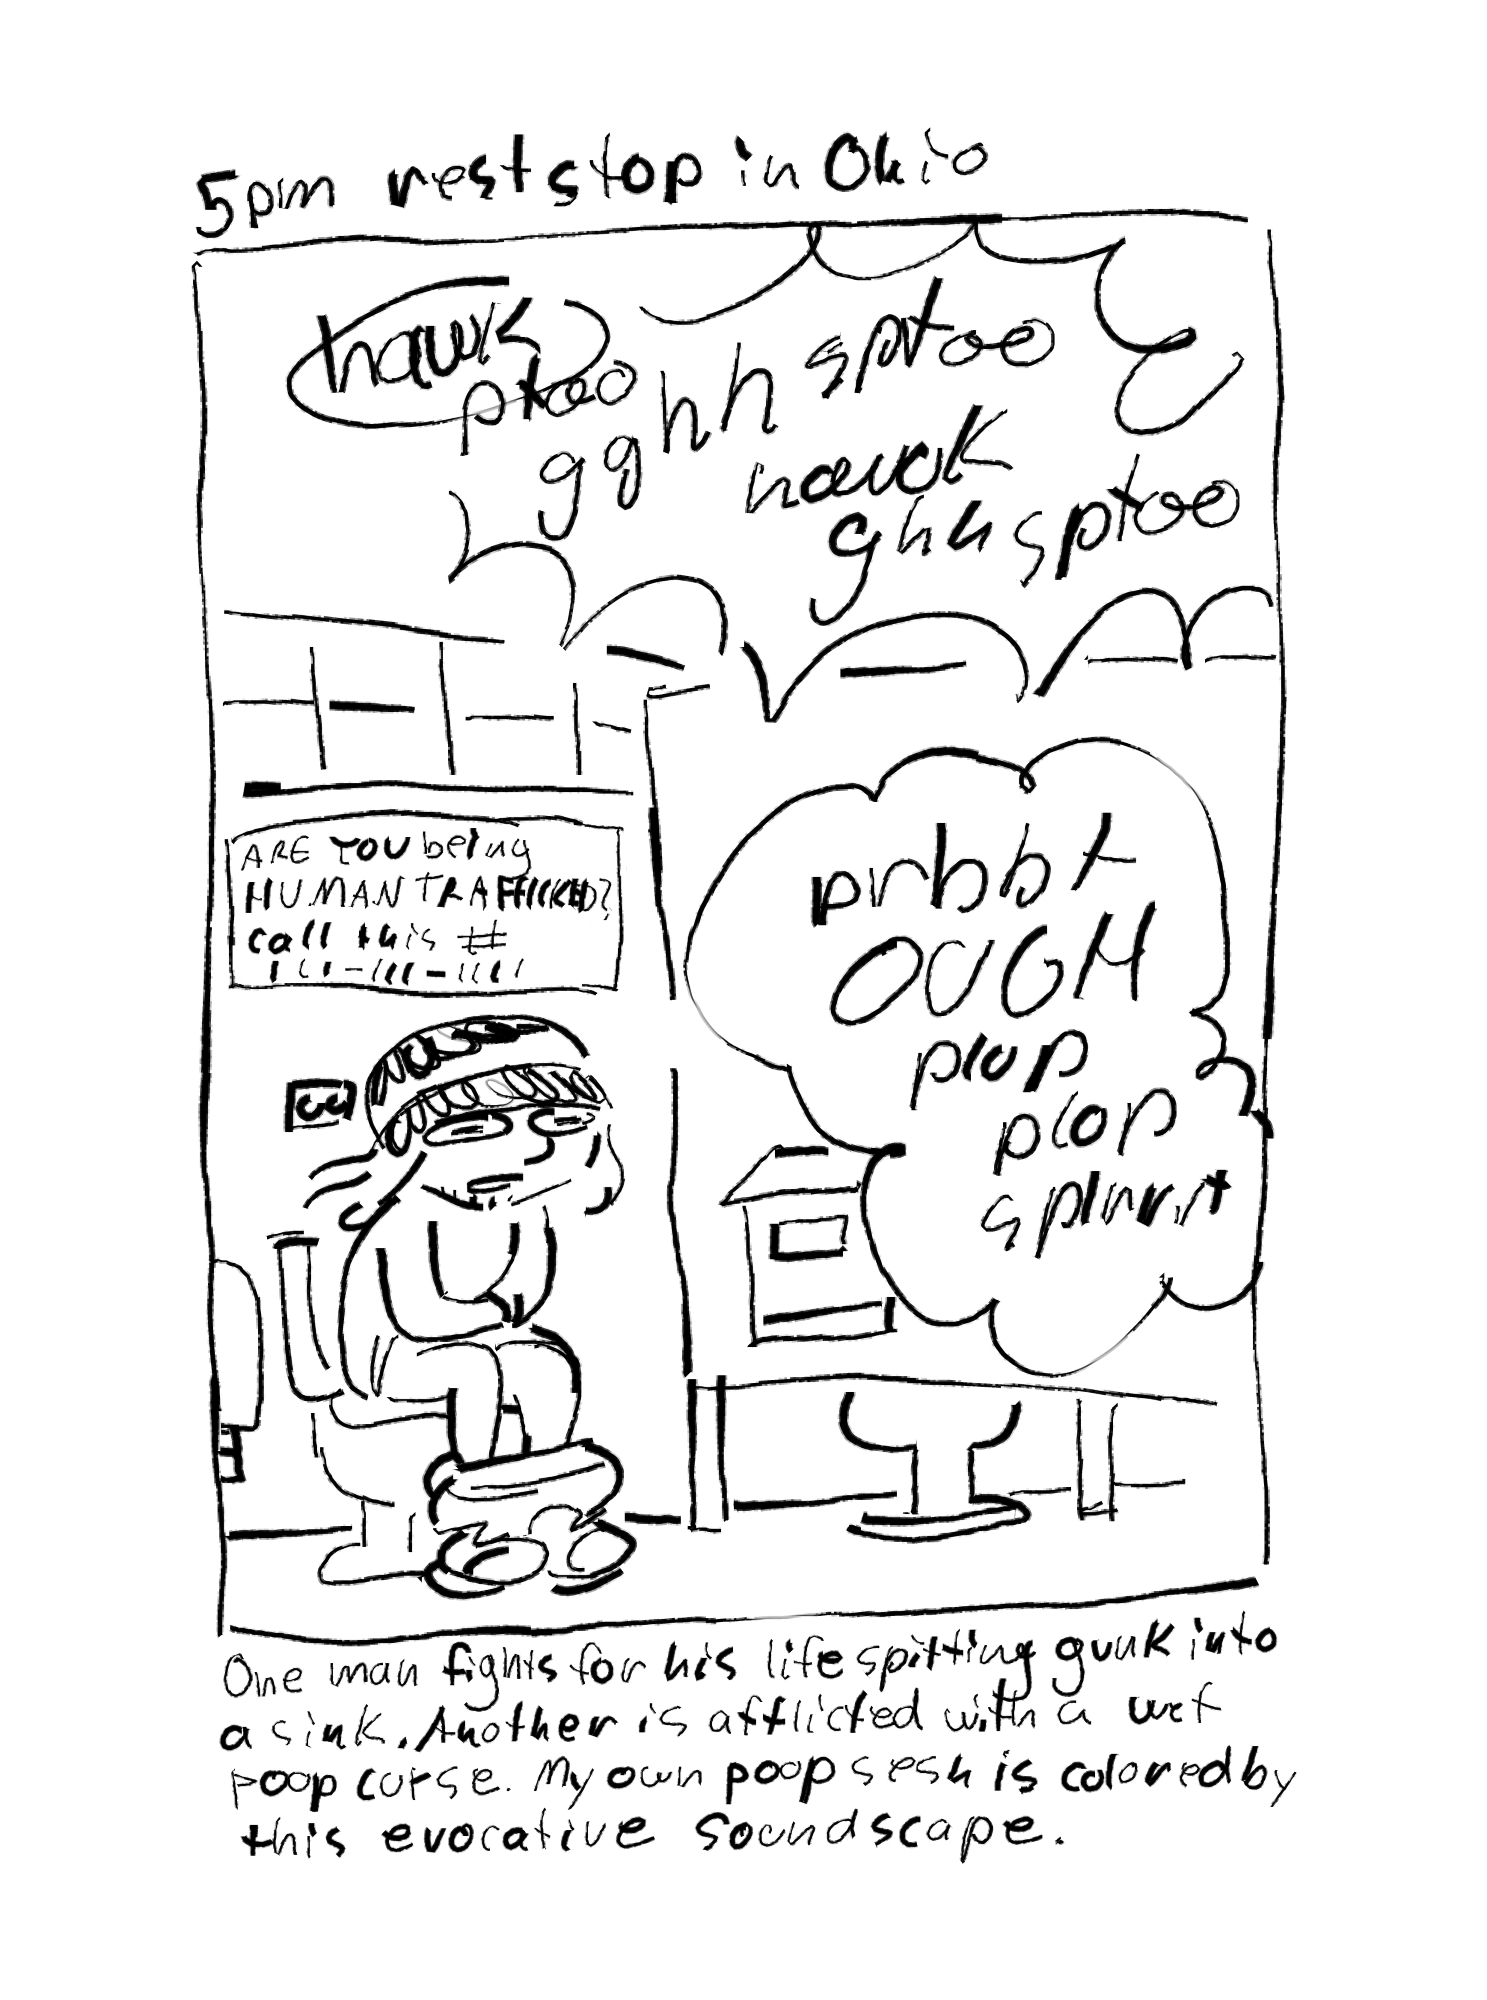 5pm rest stop in Ohio
hawk
ptoo
gghh sptoo
hawk
ghh sptoo
ARE YOU being
HUMAN TRAFFICKED?
call this #
prbbt
OUGH
plop
plop
One man fights for his life spitting gunk into
a sink. Another is afflicted with a wet
poop curse. My own poop sesh is colored by
this evocative soundscape.